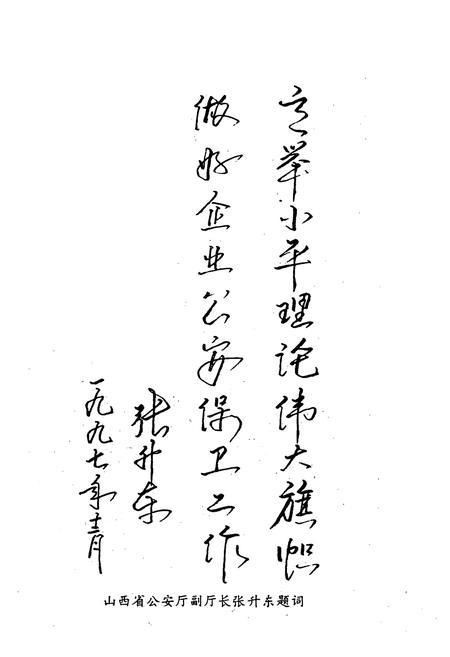 高举小平理论伟大旗帜
做好企业公安保卫工作
张升东
一九九七年十二月
山西省公安厅副厅长张升东题词